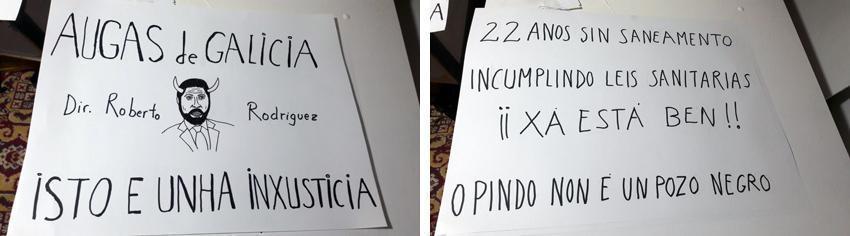 AUGAS de GALICIA
Dir. Roberto Rodríguez
ISTO E UNHA INXUSTICIA
A
22 ANOS SIN SANEAMENTO
INCUMPLINDO LEIS SANITARIAS
¡¡ XA ESTÁ BEN !!
O PINDO NON É UN POZO NEGRO